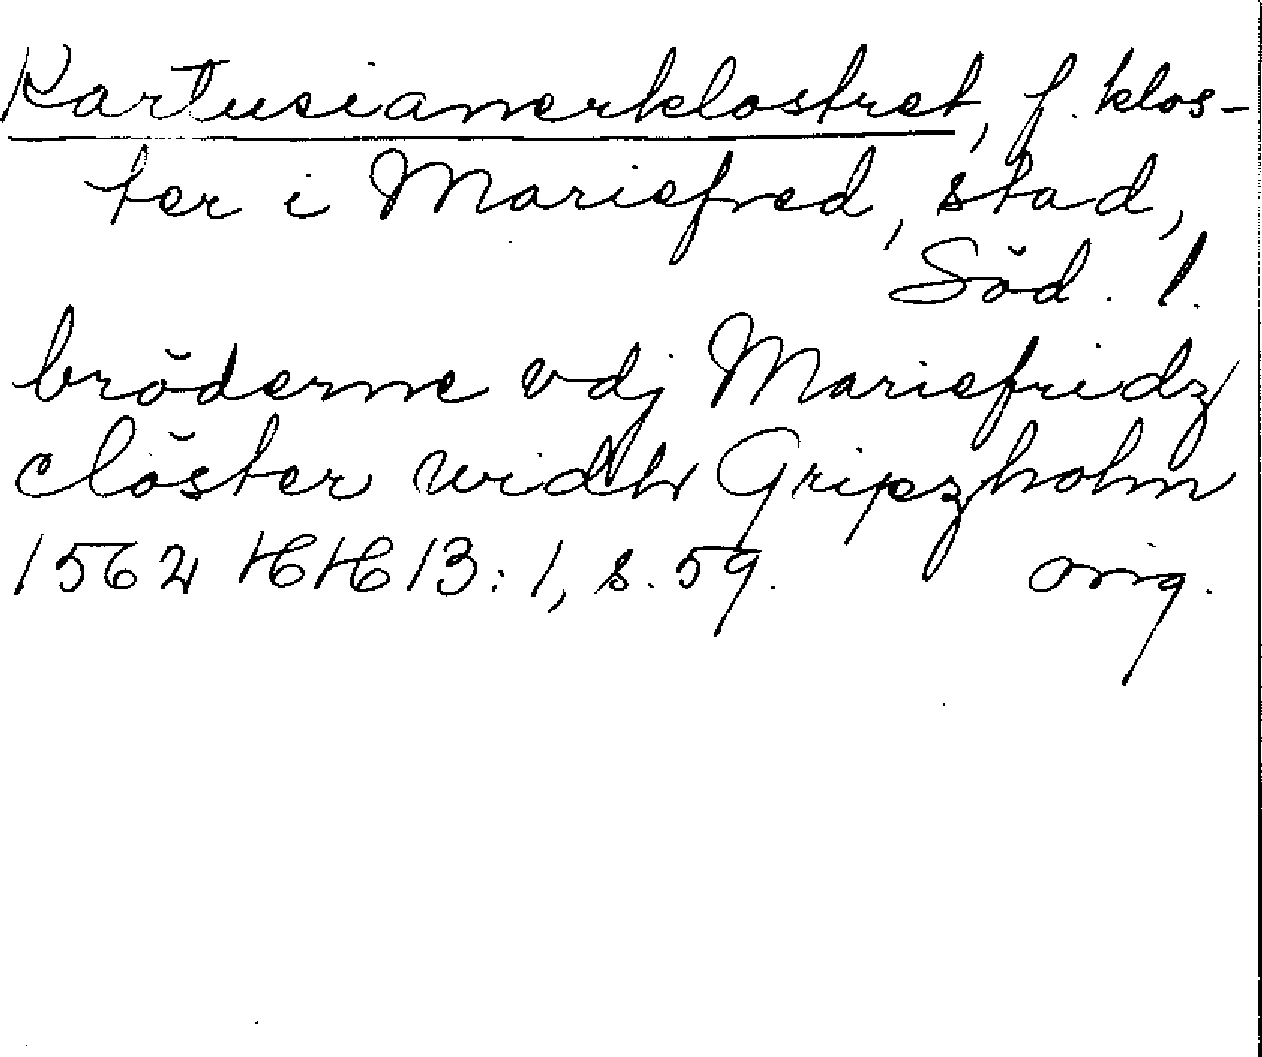 Kartusianerklostret, f. klos-
ter i Mariefred, stad,
Söd. l.
bröderne vdj Mariefridz
clöster widh Gripzholm
1562 HH 13:1, s. 59. orig.